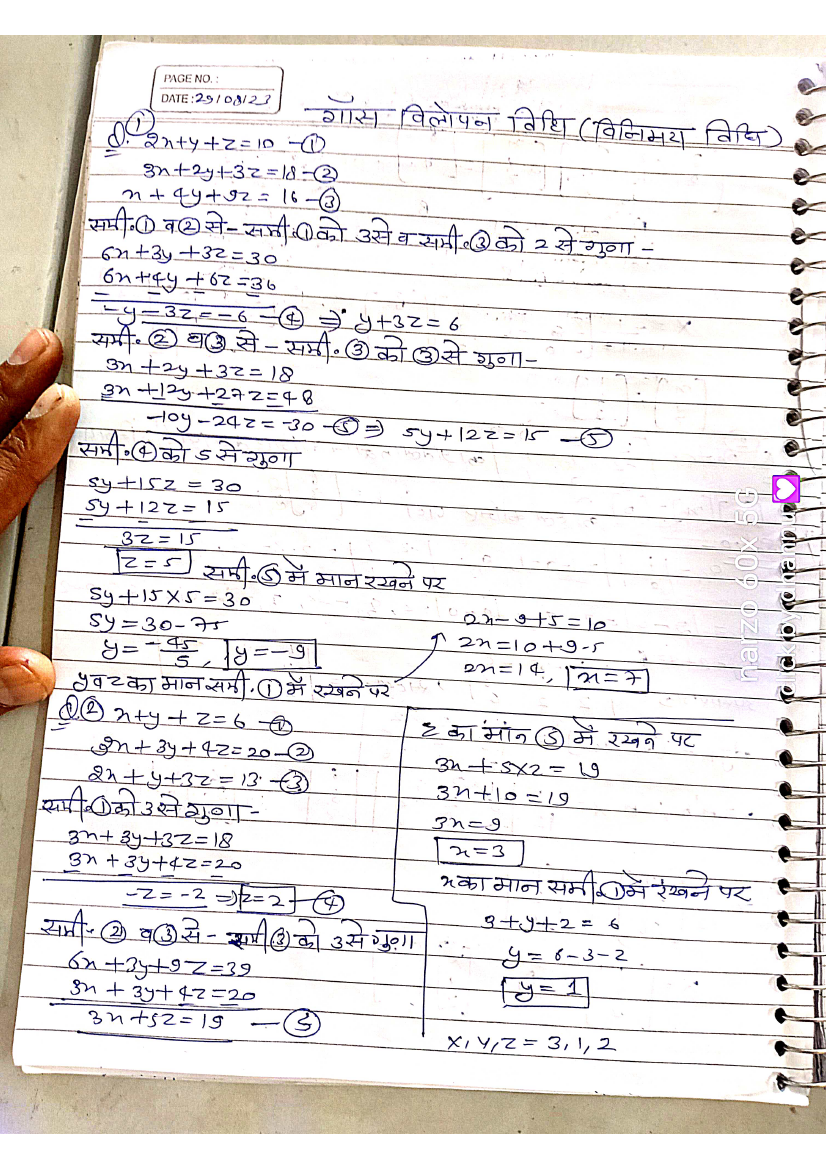 PAGE NO. :
DATE : 29/08/23
गॉस विलोपन विधि (विनिमय विधि)
Q. ① 2x+y+z=10 -①
3x+2y+3z=18-②
x+4y+9z=16-③
समी.① व② से- समी.① को 3से व समी.② को 2 से गुणा -
6x+3y+3z=30
6x+4y+6z=36
-y-3z=-6 -④ ⇒ y+3z=6
समी. ② व③ से- समी.③ को ③से गुना-
3x+2y+3z=18
3x+12y+27z=48
-10y-24z=-30-⑤⇒ 5y+12z=15 -⑤
समी.④ को 5 से गुणा
5y+15z=30
5y+12z=15
3z=15
z=5 समी.⑤ में मान रखने पर
5y+15×5=30
5y=30-75
y=-45/5, y=-9
y व z का मान समी.① में रखने पर
2x-9+5=10
2x=10+9-5
2x=14, x=7
Q.② x+y+z=6 -①
3x+3y+4z=20-②
2x+y+3z=13-③
समी.① को 3से गुणा-
3x+3y+3z=18
3x+3y+4z=20
-z=-2⇒z=2-④
समी.② व③ से- समी③ को 3से गुणा
6x+3y+9z=39
3x+3y+4z=20
3x+5z=19 -⑤
z का मान ⑤ में रखने पर
3x+5×2=19
3x+10=19
3x=9
x=3
x का मान समी.① में रखने पर
3+y+2=6
y=6-3-2
y=1
x,y,z=3,1,2
narzo 60x 5G